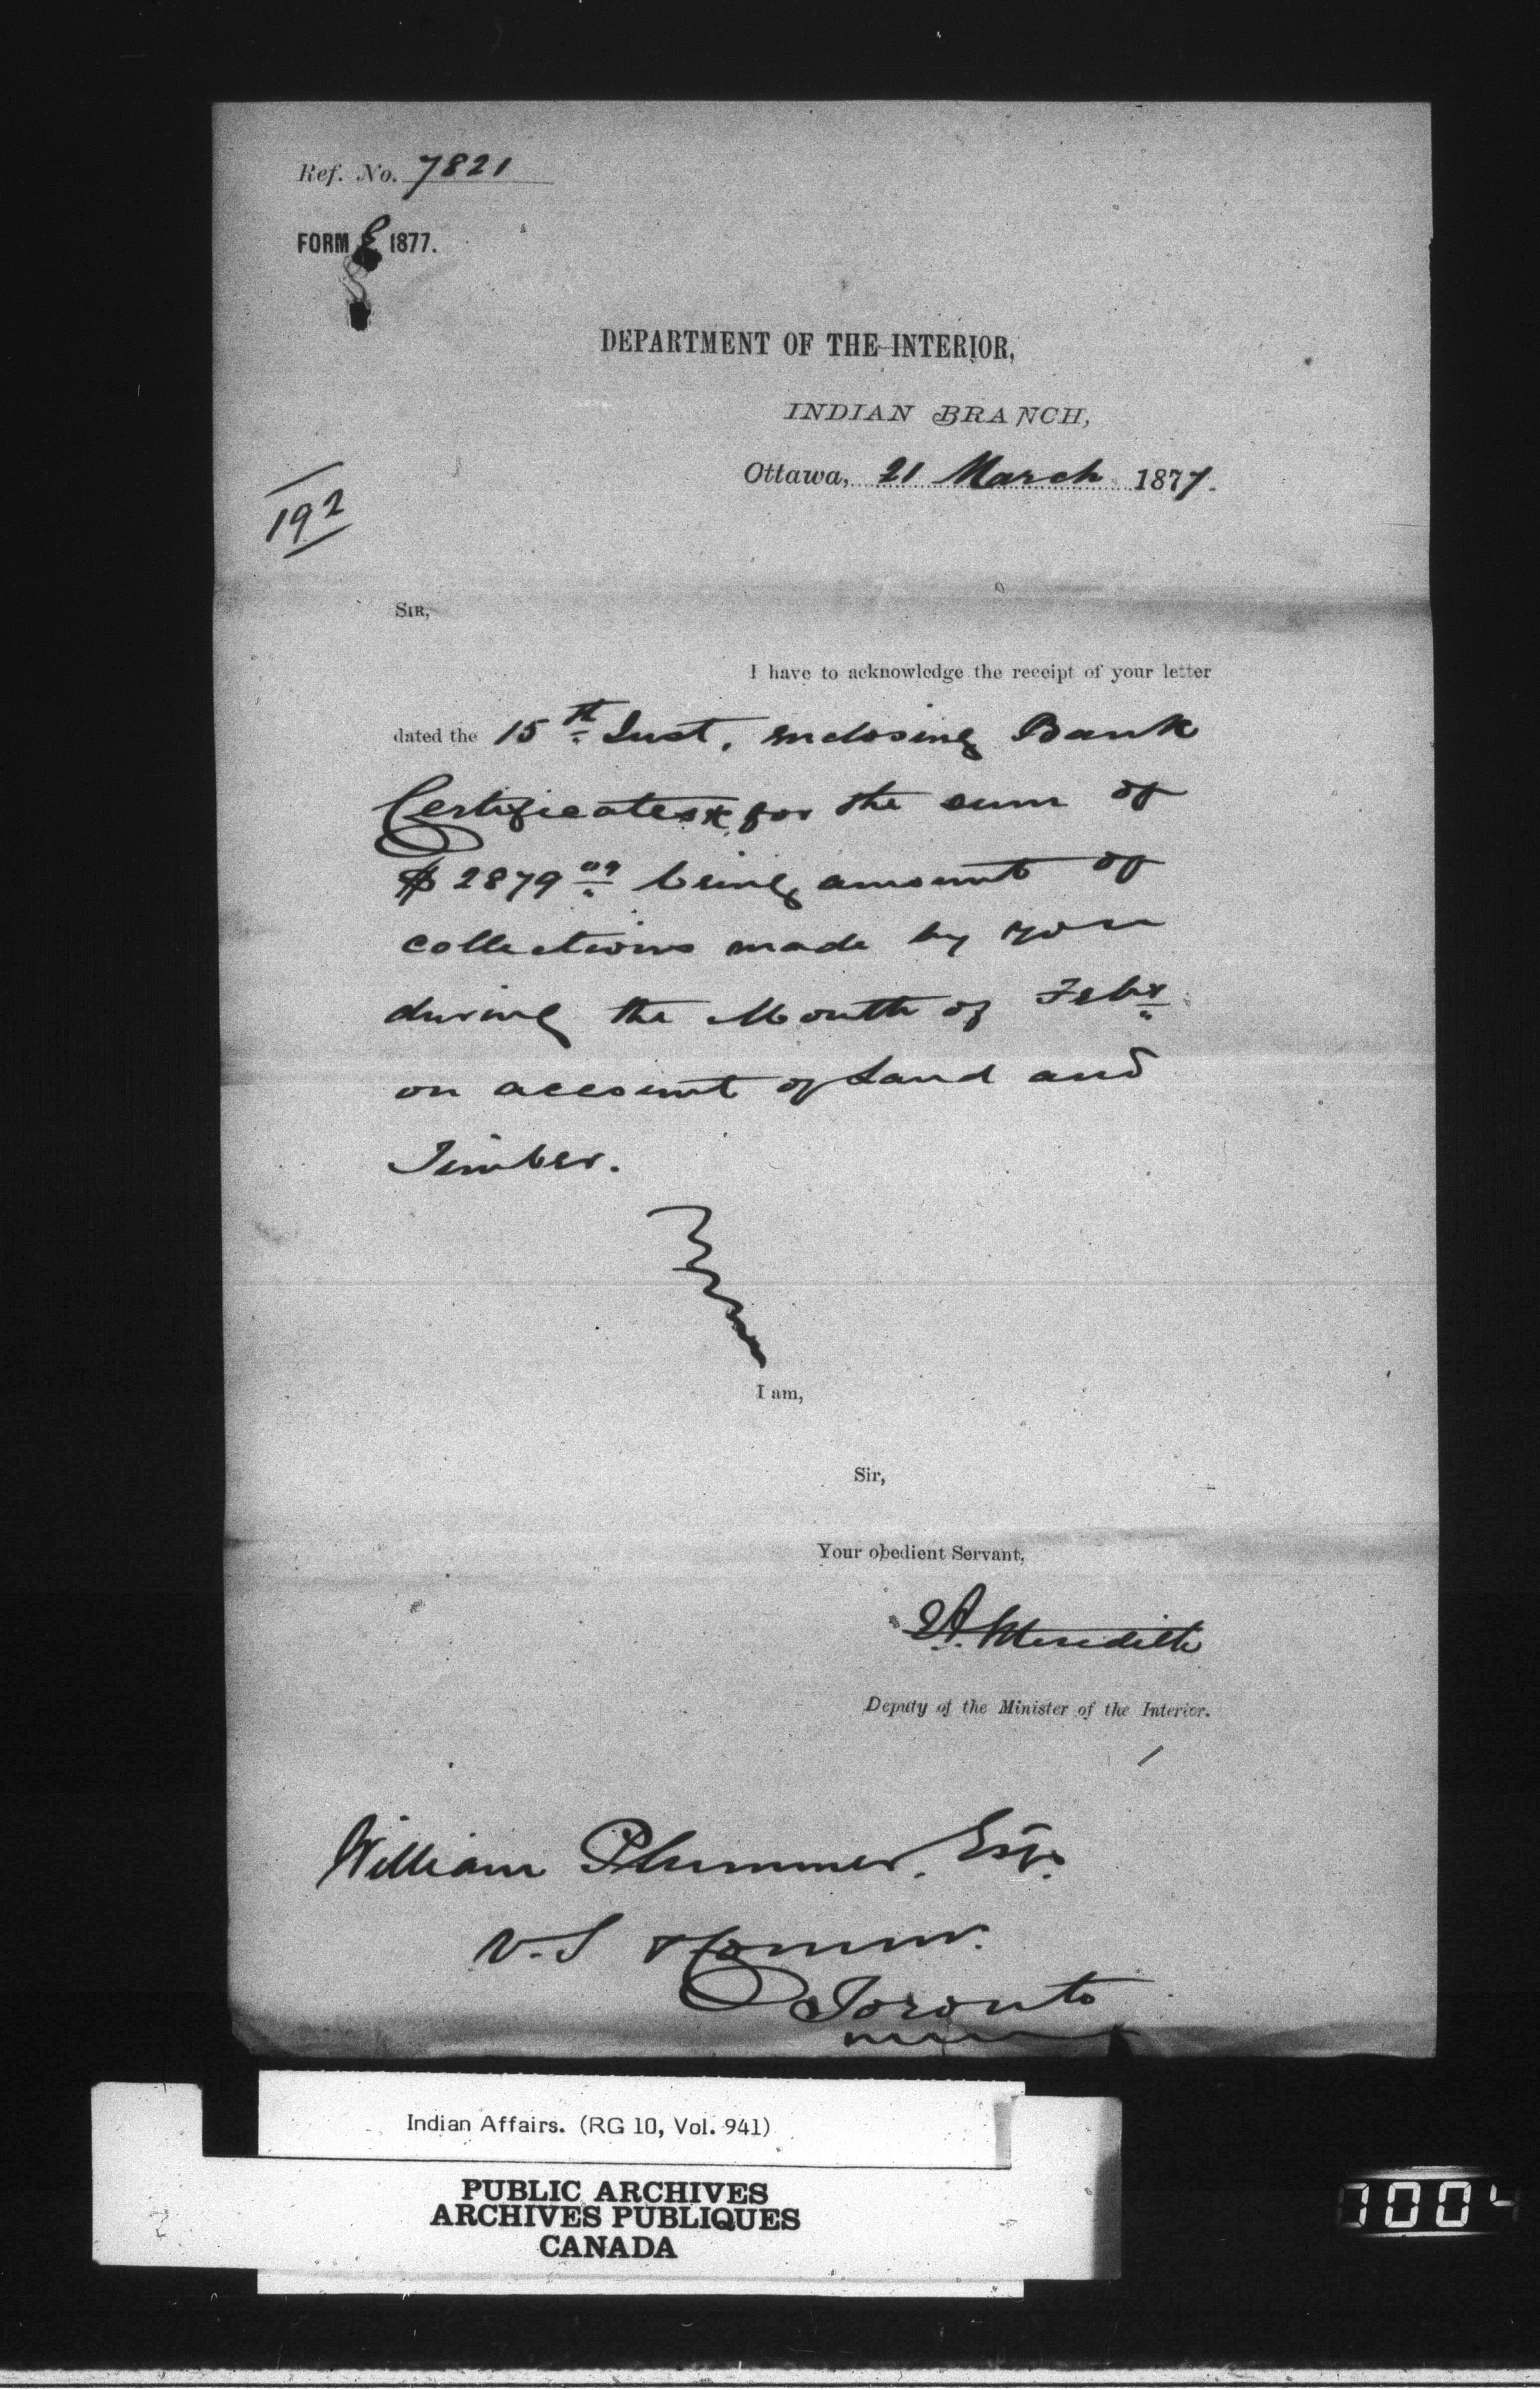 Ref. No. 7821
FORM E 1877.
DEPARTMENT OF THE INTERIOR,
INDIAN BRANCH,
Ottawa, 21 March 1877.
192
SIR,
I have to acknowledge the receipt of your letter
dated the 15th Inst. enclosing Bank
Certificates for the sum of
$2879 09 being amount of
collections made by you
during the Month of Feby
on account of Land and
Timber.
I am,
Sir,
Your obedient Servant,
EA. Meredith
Deputy of the Minister of the Interior.
William Plummer. Esq.
V.S Commr.
Toronto
Indian Affairs. (RG 10, Vol. 941)
PUBLIC ARCHIVES
ARCHIVES PUBLIQUES
CANADA